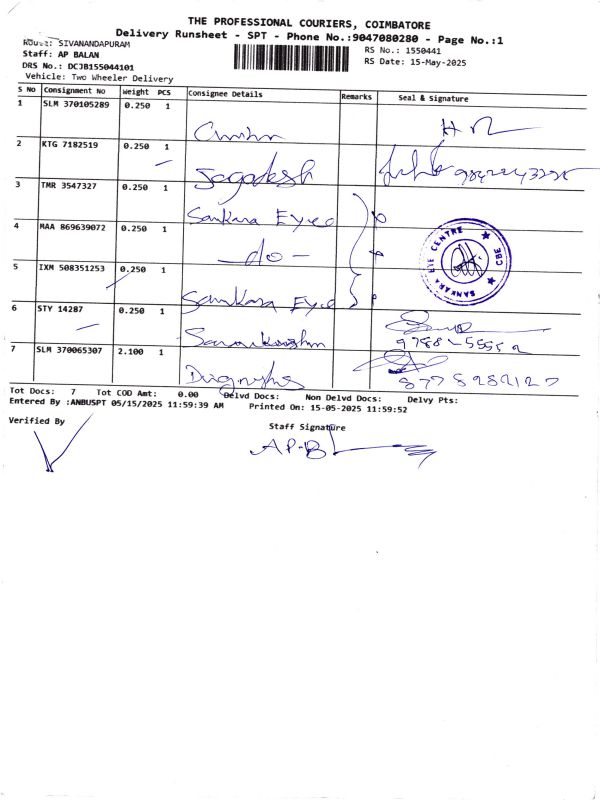 THE PROFESSIONAL COURIERS, COIMBATORE
Delivery Runsheet - SPT - Phone No.:9047080280 - Page No.:1
Route: SIVANANDAPURAM
RS No.: 1550441
Staff: AP BALAN
RS Date: 15-May-2025
DRS No.: DCJB155044101
Vehicle: Two Wheeler Delivery
S No Consignment No Weight PCS Consignee Details Remarks Seal & Signature
1 SLM 370105289 0.250 1
2 KTG 7182519 0.250 1 Jagadesh
3 TMR 3547327 0.250 1 Sankara Eye
4 MAA 869639072 0.250 1 - do -
SANKARA EYE CENTRE CBE
5 IXM 508351253 0.250 1 Sankara Eye
6 STY 14287 0.250 1
7 SLM 370065307 2.100 1
Tot Docs: 7 Tot COD Amt: 0.00 Delvd Docs: Non Delvd Docs: Delvy Pts:
Entered By :ANBUSPT 05/15/2025 11:59:39 AM Printed On: 15-05-2025 11:59:52
Verified By
Staff Signature
AP-B